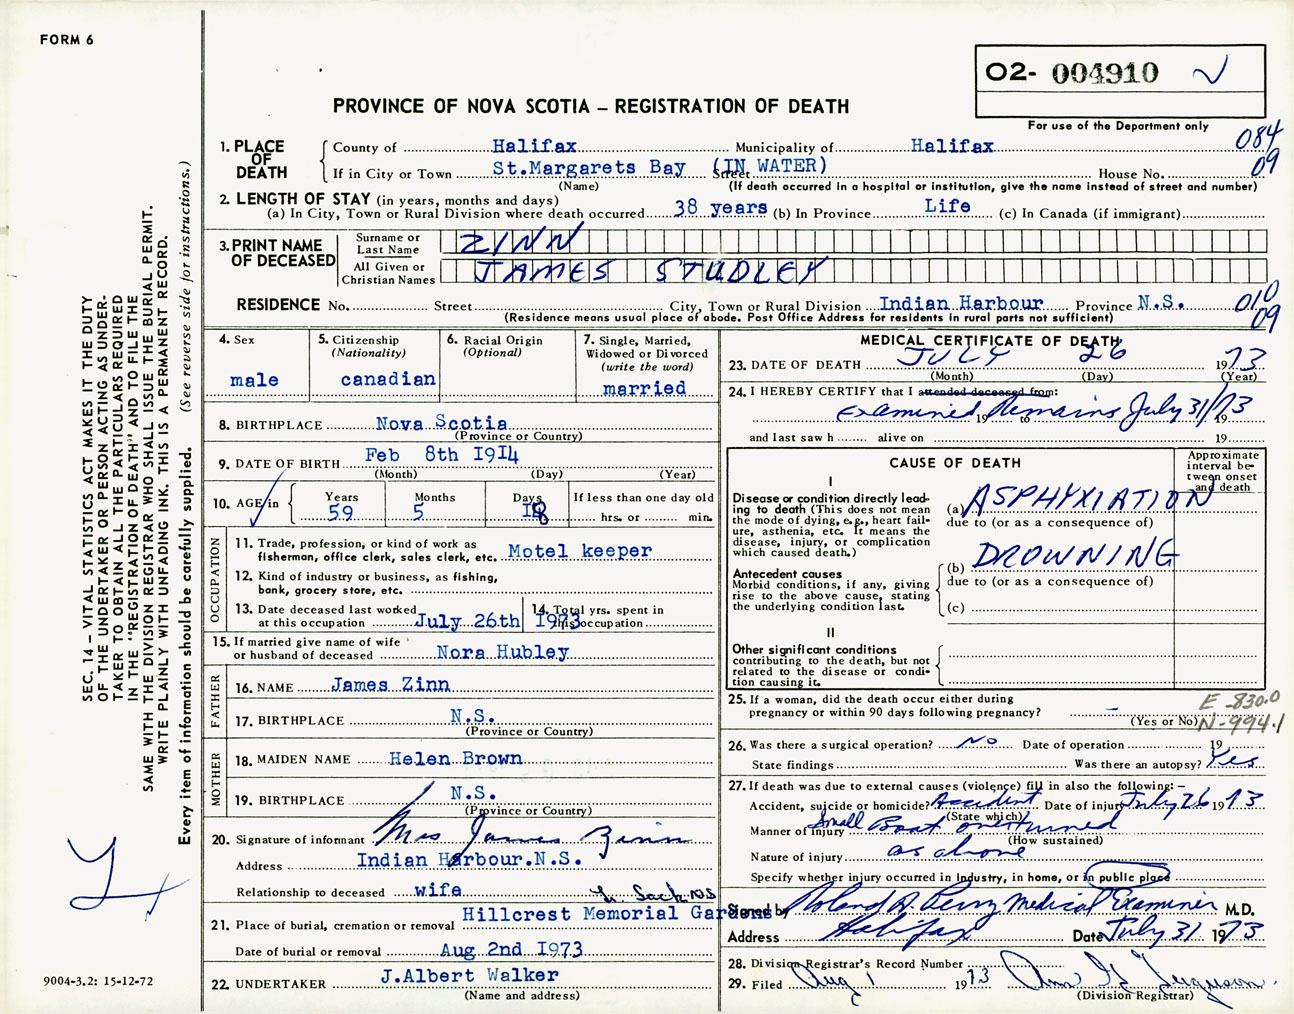 FORM 6
O2- 004910
PROVINCE OF NOVA SCOTIA – REGISTRATION OF DEATH
For use of the Department only
084
09
1. PLACE OF DEATH
County of Halifax Municipality of Halifax
If in City or Town St.Margarets Bay (IN WATER) Street House No.
(Name) (If death occurred in a hospital or institution, give the name instead of street and number)
2. LENGTH OF STAY (in years, months and days)
(a) In City, Town or Rural Division where death occurred 38 years (b) In Province Life (c) In Canada (if immigrant)
3. PRINT NAME OF DECEASED
Surname or Last Name ZINN
All Given or Christian Names JAMES STUDLEY
RESIDENCE No. Street City, Town or Rural Division Indian Harbour Province N.S.
(Residence means usual place of abode. Post Office Address for residents in rural parts not sufficient)
010
09
4. Sex
male
5. Citizenship
(Nationality)
canadian
6. Racial Origin
(Optional)
7. Single, Married,
Widowed or Divorced
(write the word)
married
8. BIRTHPLACE Nova Scotia
(Province or Country)
9. DATE OF BIRTH Feb 8th 1914
(Month) (Day) (Year)
10. AGE in
Years 59
Months 5
Days 18
If less than one day old
hrs. or min.
OCCUPATION
11. Trade, profession, or kind of work as
fisherman, office clerk, sales clerk, etc. Motel keeper
12. Kind of industry or business, as fishing,
bank, grocery store, etc.
13. Date deceased last worked
at this occupation July 26th 1973
14. Total yrs. spent in
this occupation
15. If married give name of wife
or husband of deceased Nora Hubley
FATHER
16. NAME James Zinn
17. BIRTHPLACE N.S.
(Province or Country)
MOTHER
18. MAIDEN NAME Helen Brown
19. BIRTHPLACE N.S.
(Province or Country)
20. Signature of informant Mrs James Zinn
Address Indian Harbour.N.S.
Relationship to deceased wife
Sack NS
21. Place of burial, cremation or removal Hillcrest Memorial Gardens
Date of burial or removal Aug 2nd 1973
22. UNDERTAKER J.Albert Walker
(Name and address)
MEDICAL CERTIFICATE OF DEATH
23. DATE OF DEATH JULY 26 1973
(Month) (Day) (Year)
24. I HEREBY CERTIFY that I attended deceased from:
Examined 19 Remains to July 31/73
and last saw h alive on 19
CAUSE OF DEATH
Approximate
interval be-
tween onset
and death
I
Disease or condition directly lead-
ing to death (This does not mean
the mode of dying, e.g., heart fail-
ure, asthenia, etc. It means the
disease, injury, or complication
which caused death.)
(a) ASPHYXIATION
due to (or as a consequence of)
Antecedent causes
Morbid conditions, if any, giving
rise to the above cause, stating
the underlying condition last.
(b) DROWNING
due to (or as a consequence of)
(c)
II
Other significant conditions
contributing to the death, but not
related to the disease or condi-
tion causing it.
25. If a woman, did the death occur either during
pregnancy or within 90 days following pregnancy? –
(Yes or No)
E-830.0
N-994.1
26. Was there a surgical operation? No Date of operation 19
State findings Was there an autopsy? Yes
27. If death was due to external causes (violence) fill in also the following: –
Accident, suicide or homicide? Accident Date of injury July 26 1973
(State which)
Manner of injury Small Boat overturned
(How sustained)
Nature of injury as above
Specify whether injury occurred in industry, in home, or in public place
Signed by Roland A. Perry Medical Examiner M.D.
Address Halifax Date July 31 1973
28. Division Registrar's Record Number
29. Filed Aug 1 1973 Ann G Ferguson
(Division Registrar)
SEC. 14 – VITAL STATISTICS ACT MAKES IT THE DUTY
OF THE UNDERTAKER OR PERSON ACTING AS UNDER-
TAKER TO OBTAIN ALL THE PARTICULARS REQUIRED
IN THE "REGISTRATION OF DEATH" AND TO FILE THE
SAME WITH THE DIVISION REGISTRAR WHO SHALL ISSUE THE BURIAL PERMIT.
WRITE PLAINLY WITH UNFADING INK. THIS IS A PERMANENT RECORD.
Every item of information should be carefully supplied. (See reverse side for instructions.)
9004-3.2: 15-12-72